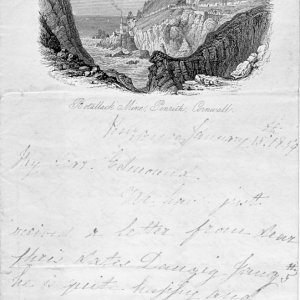 Botallack Mine, Penrith, Cornwall.
Penzance January 15th 1859
My dear Edmond.
We have just
received a letter from dear
Chris dates Danzig Jany 5th
he is quite happy and